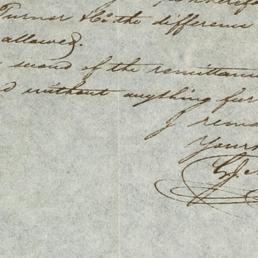 Turner & Co the difference
allowed.
second of the remittance
without anything fur
I rema
Yours